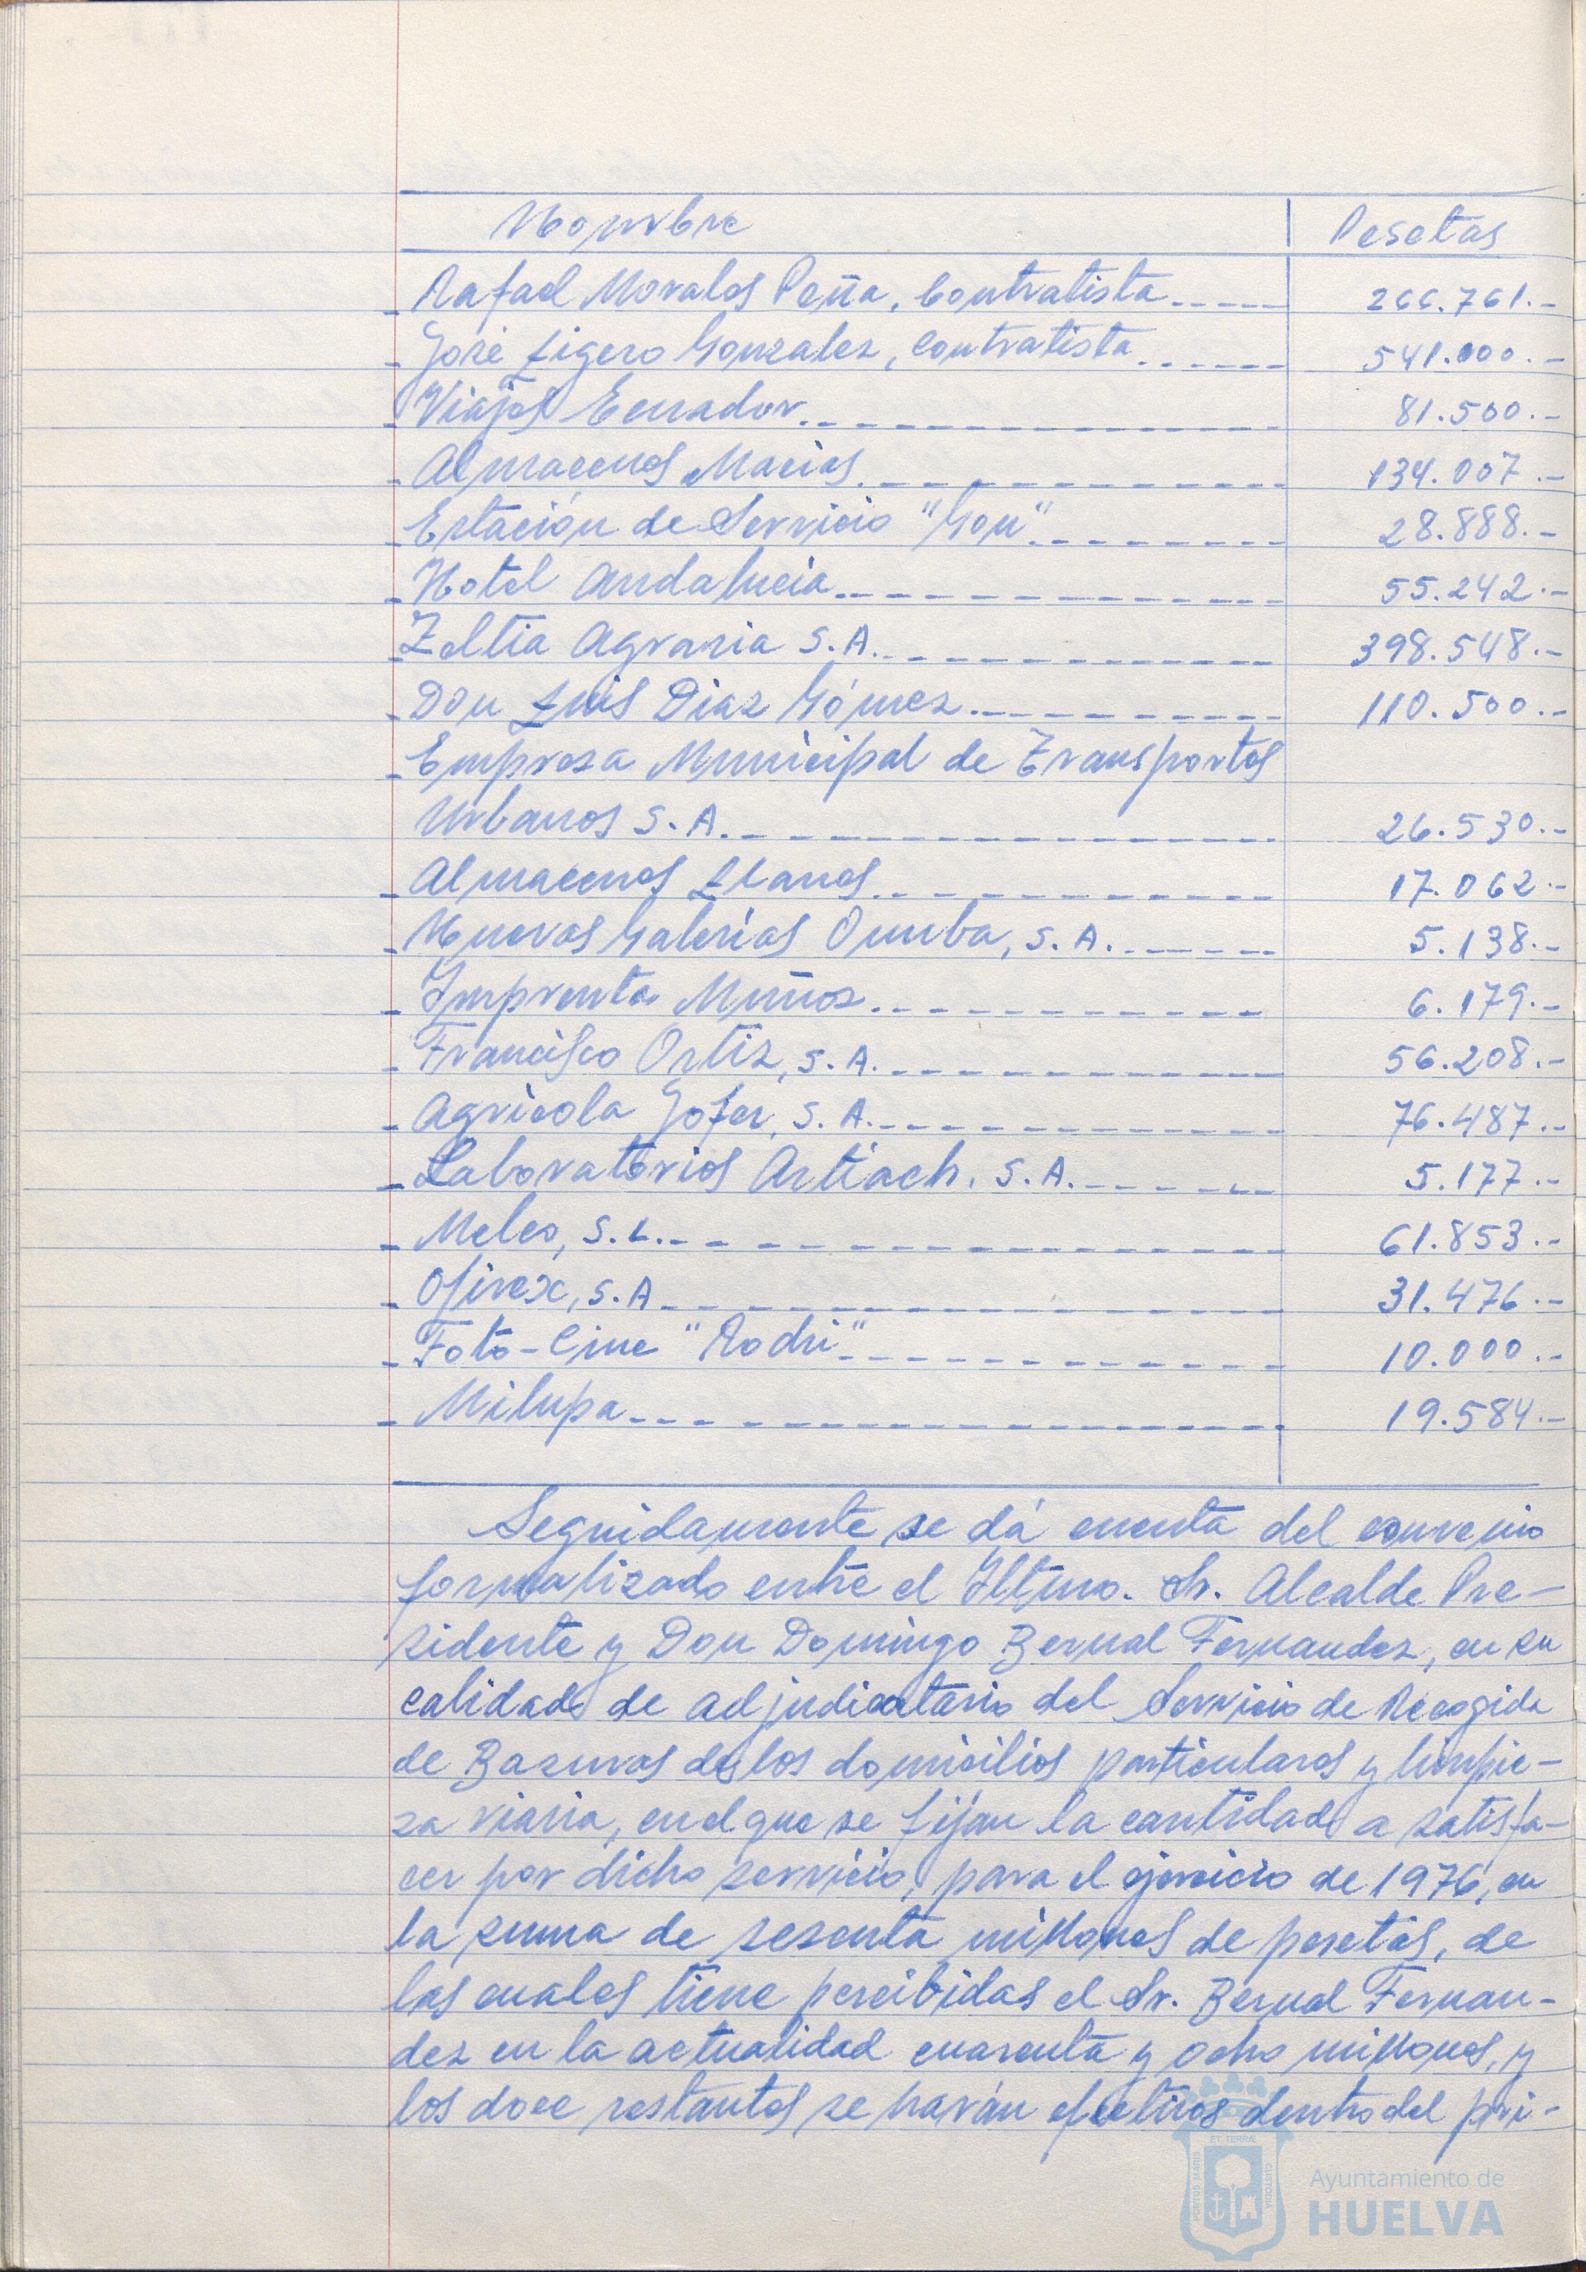 Nombre Pesetas
- Rafael Morales Peña, Contratista 266.761.-
- José Ligero Gonzalez, Contratista 541.000.-
- Viajes Ecuador 81.500.-
- Almacenes Macías 134.007.-
- Estación de Servicio "Gon" 28.888.-
- Hotel Andalucia 55.242.-
- Zeltia Agraria S.A. 398.548.-
- Don Luis Diaz Gómez 110.500.-
- Empresa Municipal de Transportes
Urbanos S.A. 26.530.-
- Almacenes Llanes 17.062.-
- Nuevas Galerías Onuba, S.A. 5.138.-
- Imprenta Muñoz 6.179.-
- Francisco Ortiz, S.A. 56.208.-
- Agrícola Gofer, S.A. 76.487.-
- Laboratorios Artiach. S.A. 5.177.-
- Melco, S.L. 61.853.-
- Ofirex, S.A 31.476.-
- Foto-Cine "Rodri" 10.000.-
- Milupa 19.584.-
Seguidamente se dá cuenta del convenio
formalizado entre el Iltmo. Sr. Alcalde Pre-
sidente y Don Domingo Bernal Fernandez, en su
calidad de adjudicatario del Servicio de Recogida
de Basuras de los domicilios particulares y limpie-
za viaria, en el que se fijan la cantidad a satisfa-
cer por dicho servicio, para el ejercicio de 1976, en
la suma de sesenta millones de pesetas, de
las cuales tiene percibidas el Sr. Bernal Fernan-
dez en la actualidad cuarenta y ocho millones, y
los doce restantes se harán efectivos dentro del pri-
ET TERRÆ
PORTUS MARIS
CUSTODIA
Ayuntamiento de
HUELVA